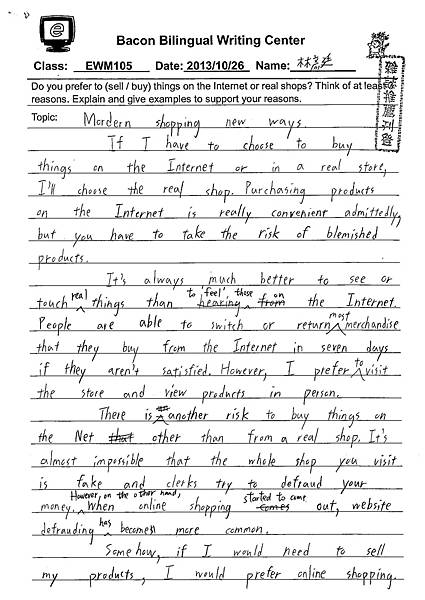 Bacon Bilingual Writing Center
Class: EWM105 Date: 2013/10/26 Name:
Do you prefer to (sell / buy) things on the Internet or real shops? Think of at least
reasons. Explain and give examples to support your reasons.
雜誌推薦刊登
Topic: Mordern shopping new ways
If I have to choose to buy
things on the Internet or in a real store,
I'll choose the real shop. Purchasing products
on the Internet is really convenient admittedly,
but you have to take the risk of blemished
products.
It's always much better to see or
touch real things than to 'feel' these hearing from on the Internet.
People are able to switch or return most merchandise
that they buy from the Internet in seven days
if they aren't satisfied. However, I prefer to visit
the store and view products in person.
There is another risk to buy things on
the Net that other than from a real shop. It's
almost impossible that the whole shop you visit
is fake and clerks try to defraud your
money. However, on the other hand, When online shopping started to come comes out, website
defrauding has becomes more common.
Somehow, if I would need to sell
my products, I would prefer online shopping.